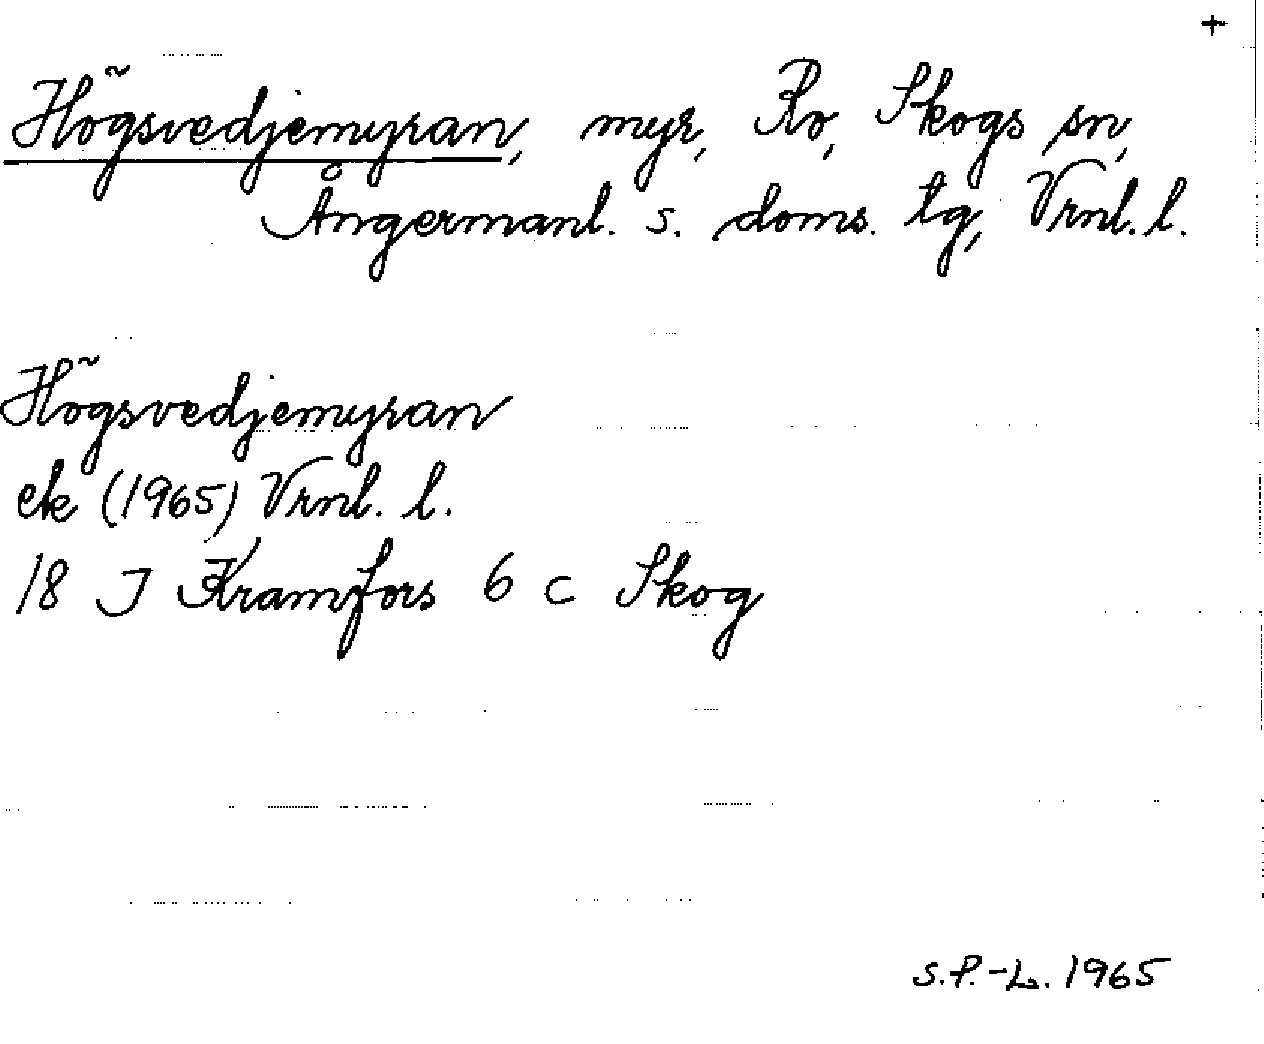 +
Högsvedjemyran, myr, Ro, Skogs sn,
Ångermanl. s. doms. tg, Vrnl. l.
Högsvedjemyran
ek (1965) Vrnl. l.
18 J Kramfors 6 c Skog
S.P.-L. 1965